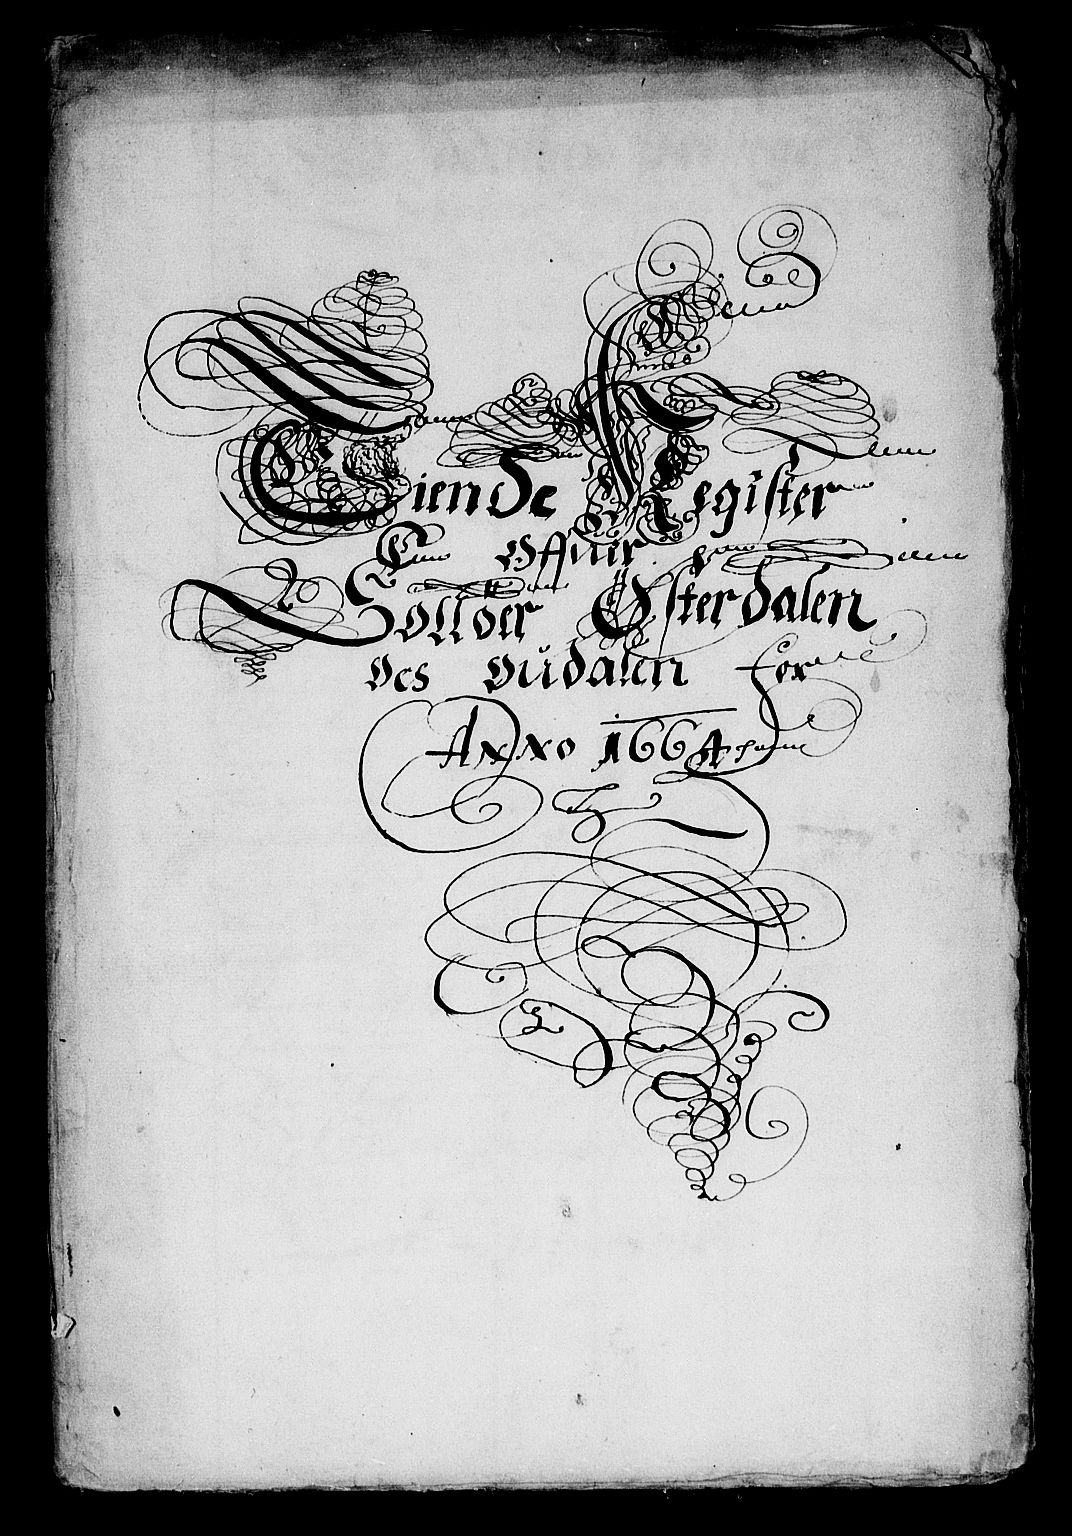 Tiende Register
offuer
Solloer Østerdalen
oes oudalen for
Anno 1664